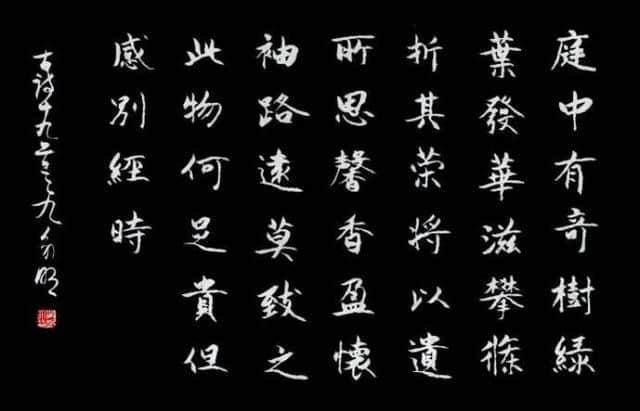 庭中有奇樹綠
葉發華滋攀條
折其荣將以遺
所思馨香盈懷
袖路遠莫致之
此物何足貴但
感別經時
古詩十九首之九